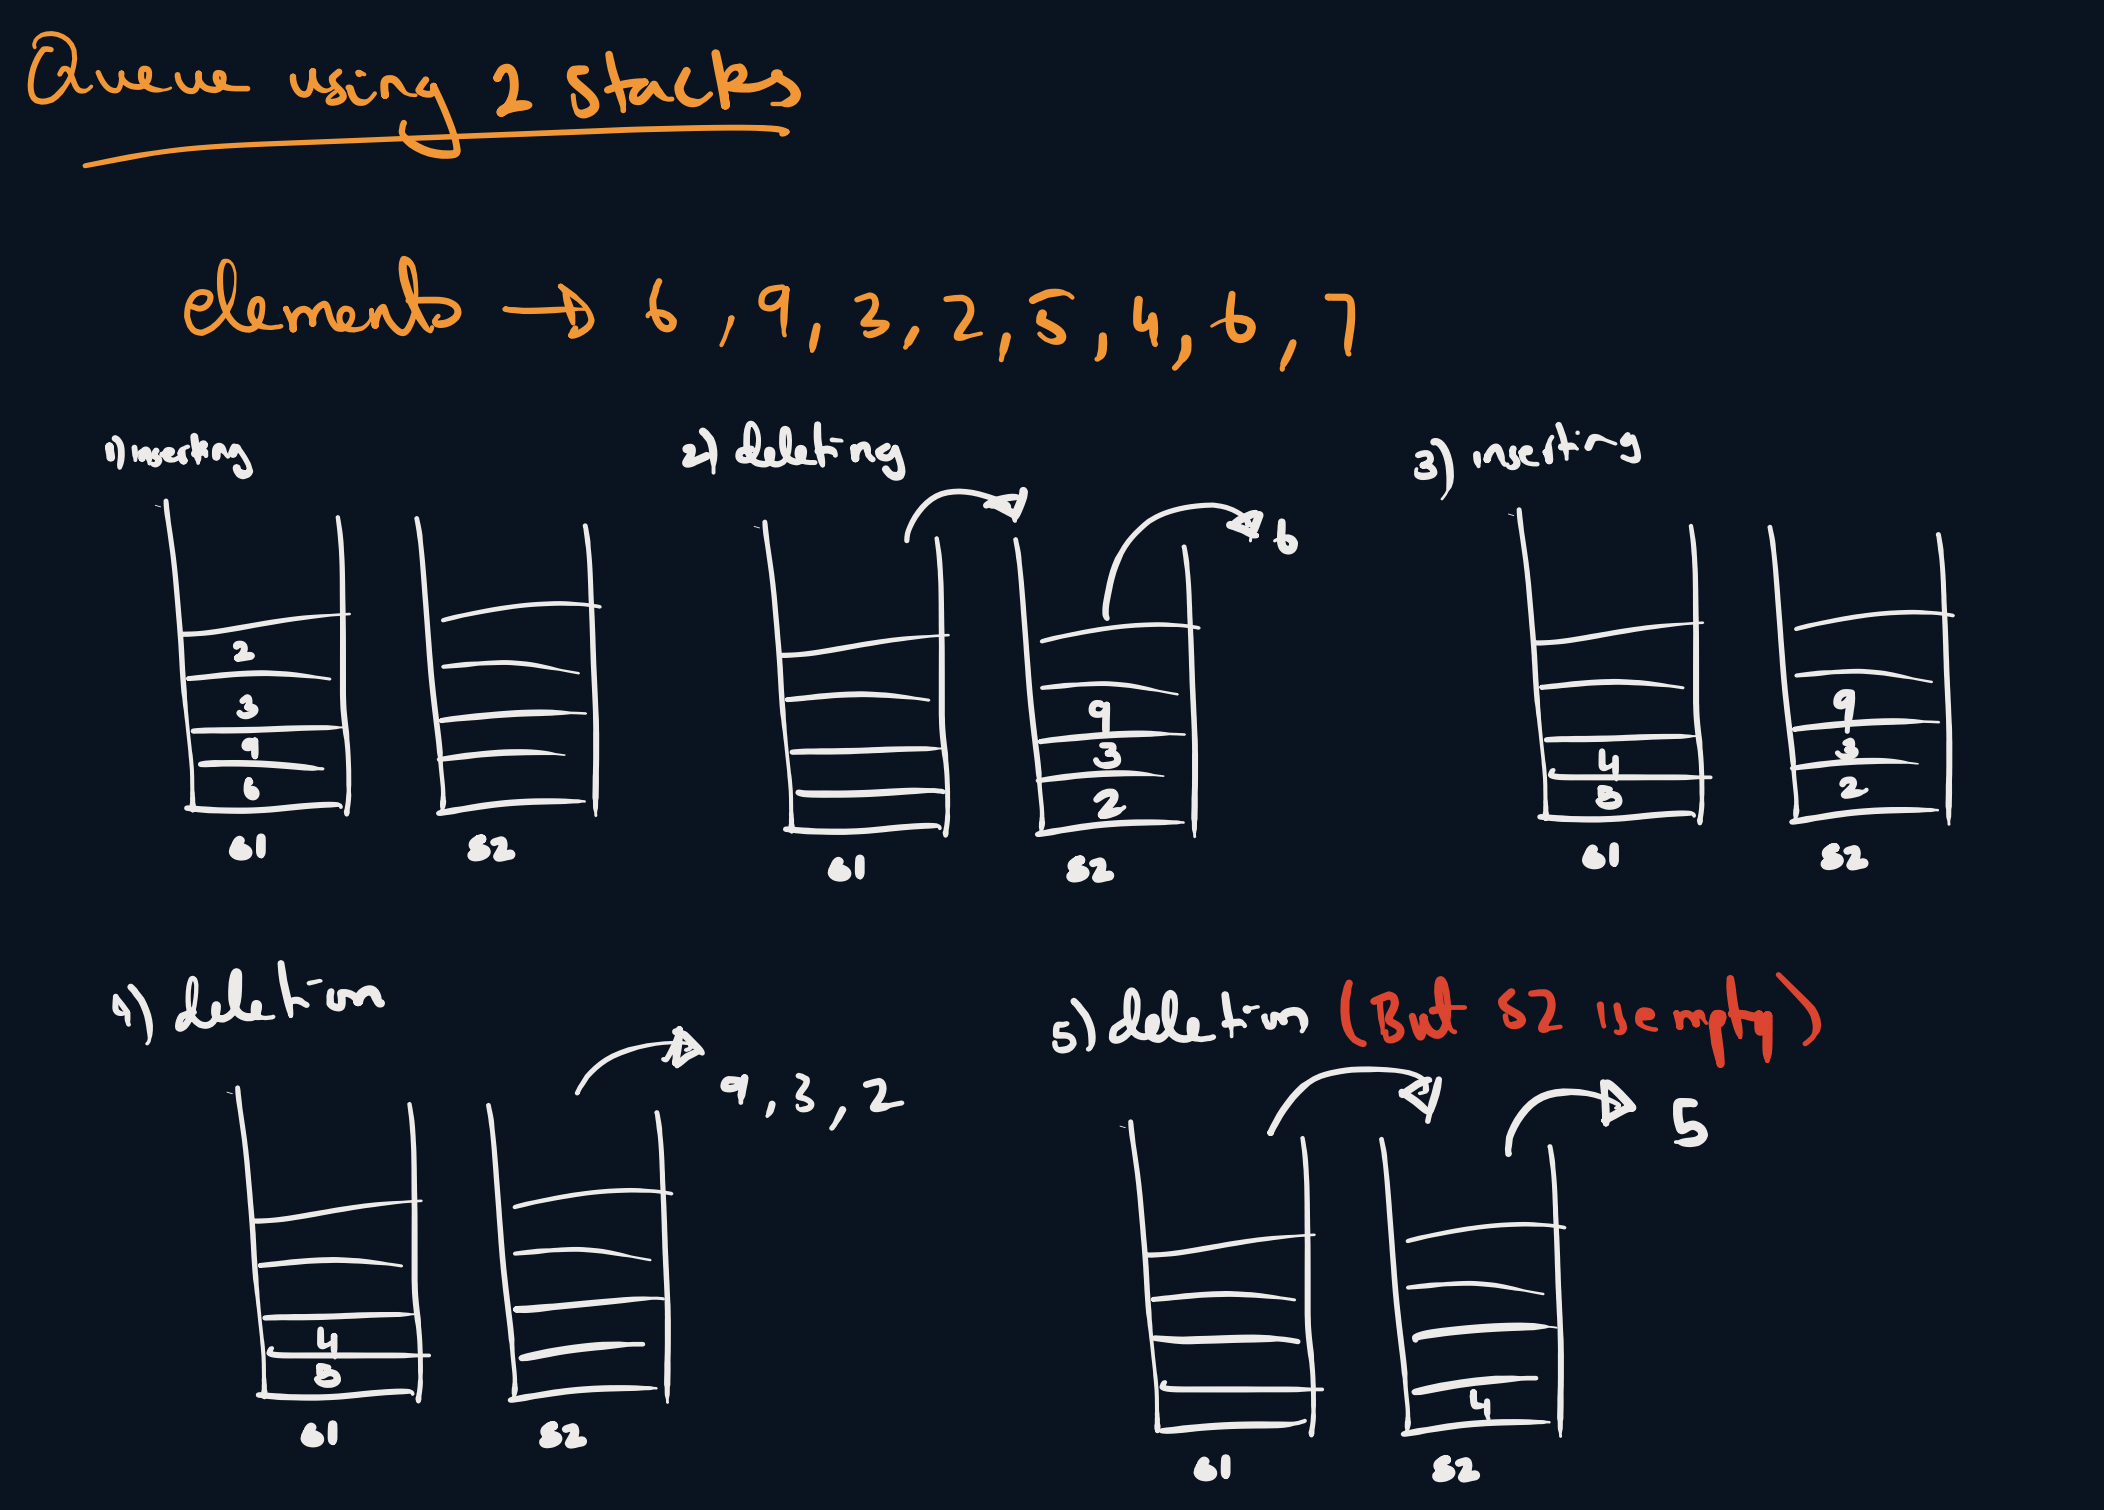 Queue using 2 stacks
elements → 6, 9, 3, 2, 5, 4, 6, 7
1) inserting
2
3
9
6
S1
S2
2) deleting
6
9
3
2
S1
S2
3) inserting
4
5
S1
9
3
2
S2
4) deletion
9, 3, 2
4
5
S1
S2
5) deletion (But S2 is empty)
5
4
S1
S2